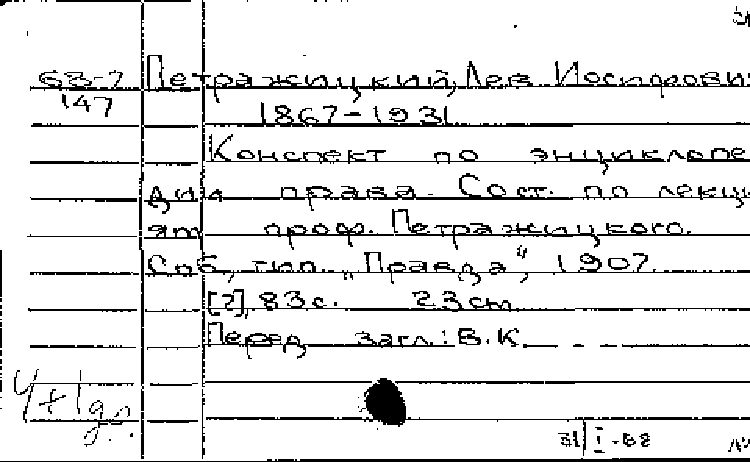 68-7 Петражицкий, Лев Иосифови
147 1867-1931
Конспект по энциклопе-
дии права. Сост. по лекци-
ям проф. Петражицкого.
Спб., тип. „Правда“, 1907.
[2], 83 с. 23 см.
Перед загл.: В.К.
4+1
31 I-88